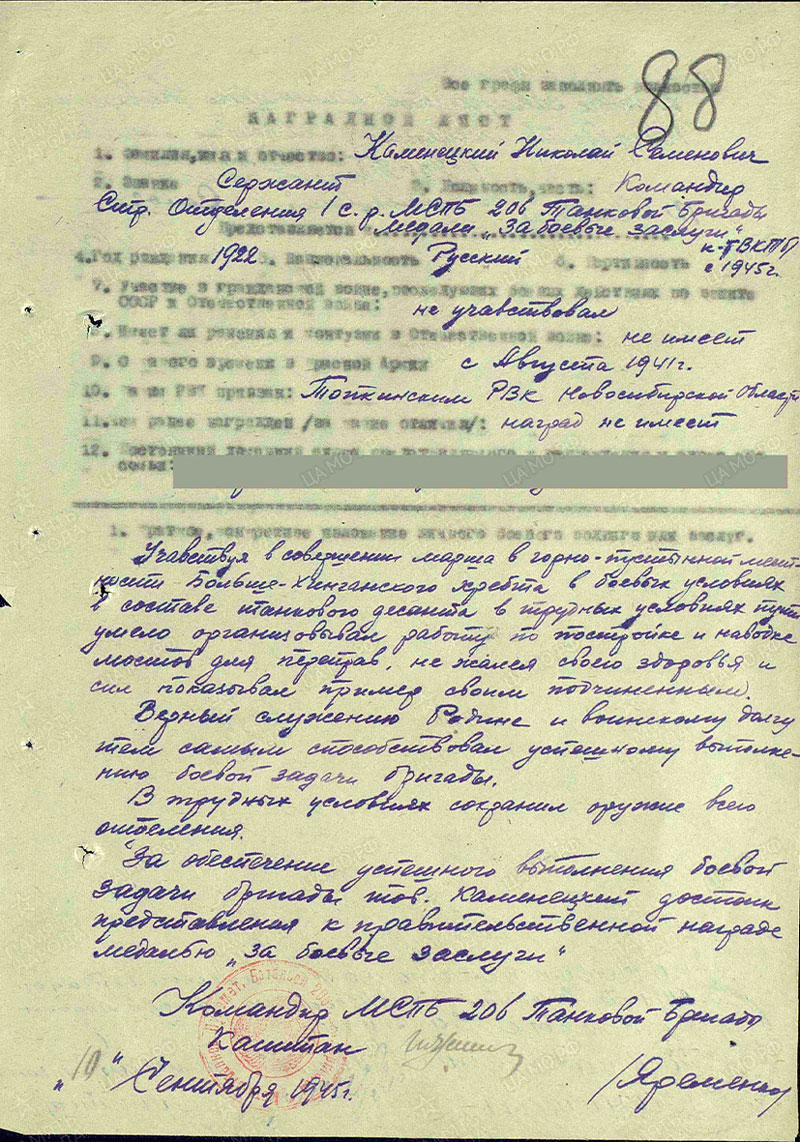 88
Все графы заполнять полностью
НАГРАДНОЙ ЛИСТ
1. Фамилия, имя и отчество: Каменецкий Николай Семенович
2. Звание Сержант 3. Должность, часть: Командир
Стр. Отделения 1 с.р. МСПБ 206 Танковой Бригады
Представляется медали „За боевые заслуги“
4. Год рождения 1922 5. Национальность Русский 6. Партийность к-т ВКП с 1945г.
7. Участие в гражданской войне, последующих боевых действиях по защите
СССР и Отечественной войне: не учавствовал
8. Имеет ли ранения и контузии в Отечественной войне: не имеет
9. С какого времени в Красной Армии с Августа 1941г.
10. Каким РВК призван: Топкинским РВК Новосибирской Области
11. Чем ранее награжден /за какие отличия/: наград не имеет
12. Постоянный домашний адрес
семьи:
1. Краткое, конкретное изложение личного боевого подвига или заслуг.
Учавствуя в совершении марша в горно-пустынной мест-
ности Больше-Хинганского хребта в боевых условиях
в составе танкового десанта в трудных условиях пути
умело организовывал работу по постройке и наводке
мостов для переправ, не жалея своего здоровья и
сил показывал пример своим подчиненным.
Верный служению Родине и воинскому долгу
тем самым способствовал успешному выполне-
нию боевой задачи бригады.
В трудных условиях сохранил оружие всего
отделения.
За обеспечение успешного выполнения боевой
задачи бригады тов. Каменецкий достоин
представления к правительственной награде
медалью „За боевые заслуги“
Командир МСПБ 206 Танковой Бригады
Капитан
„10“ Сентября 1945г. /Яременко